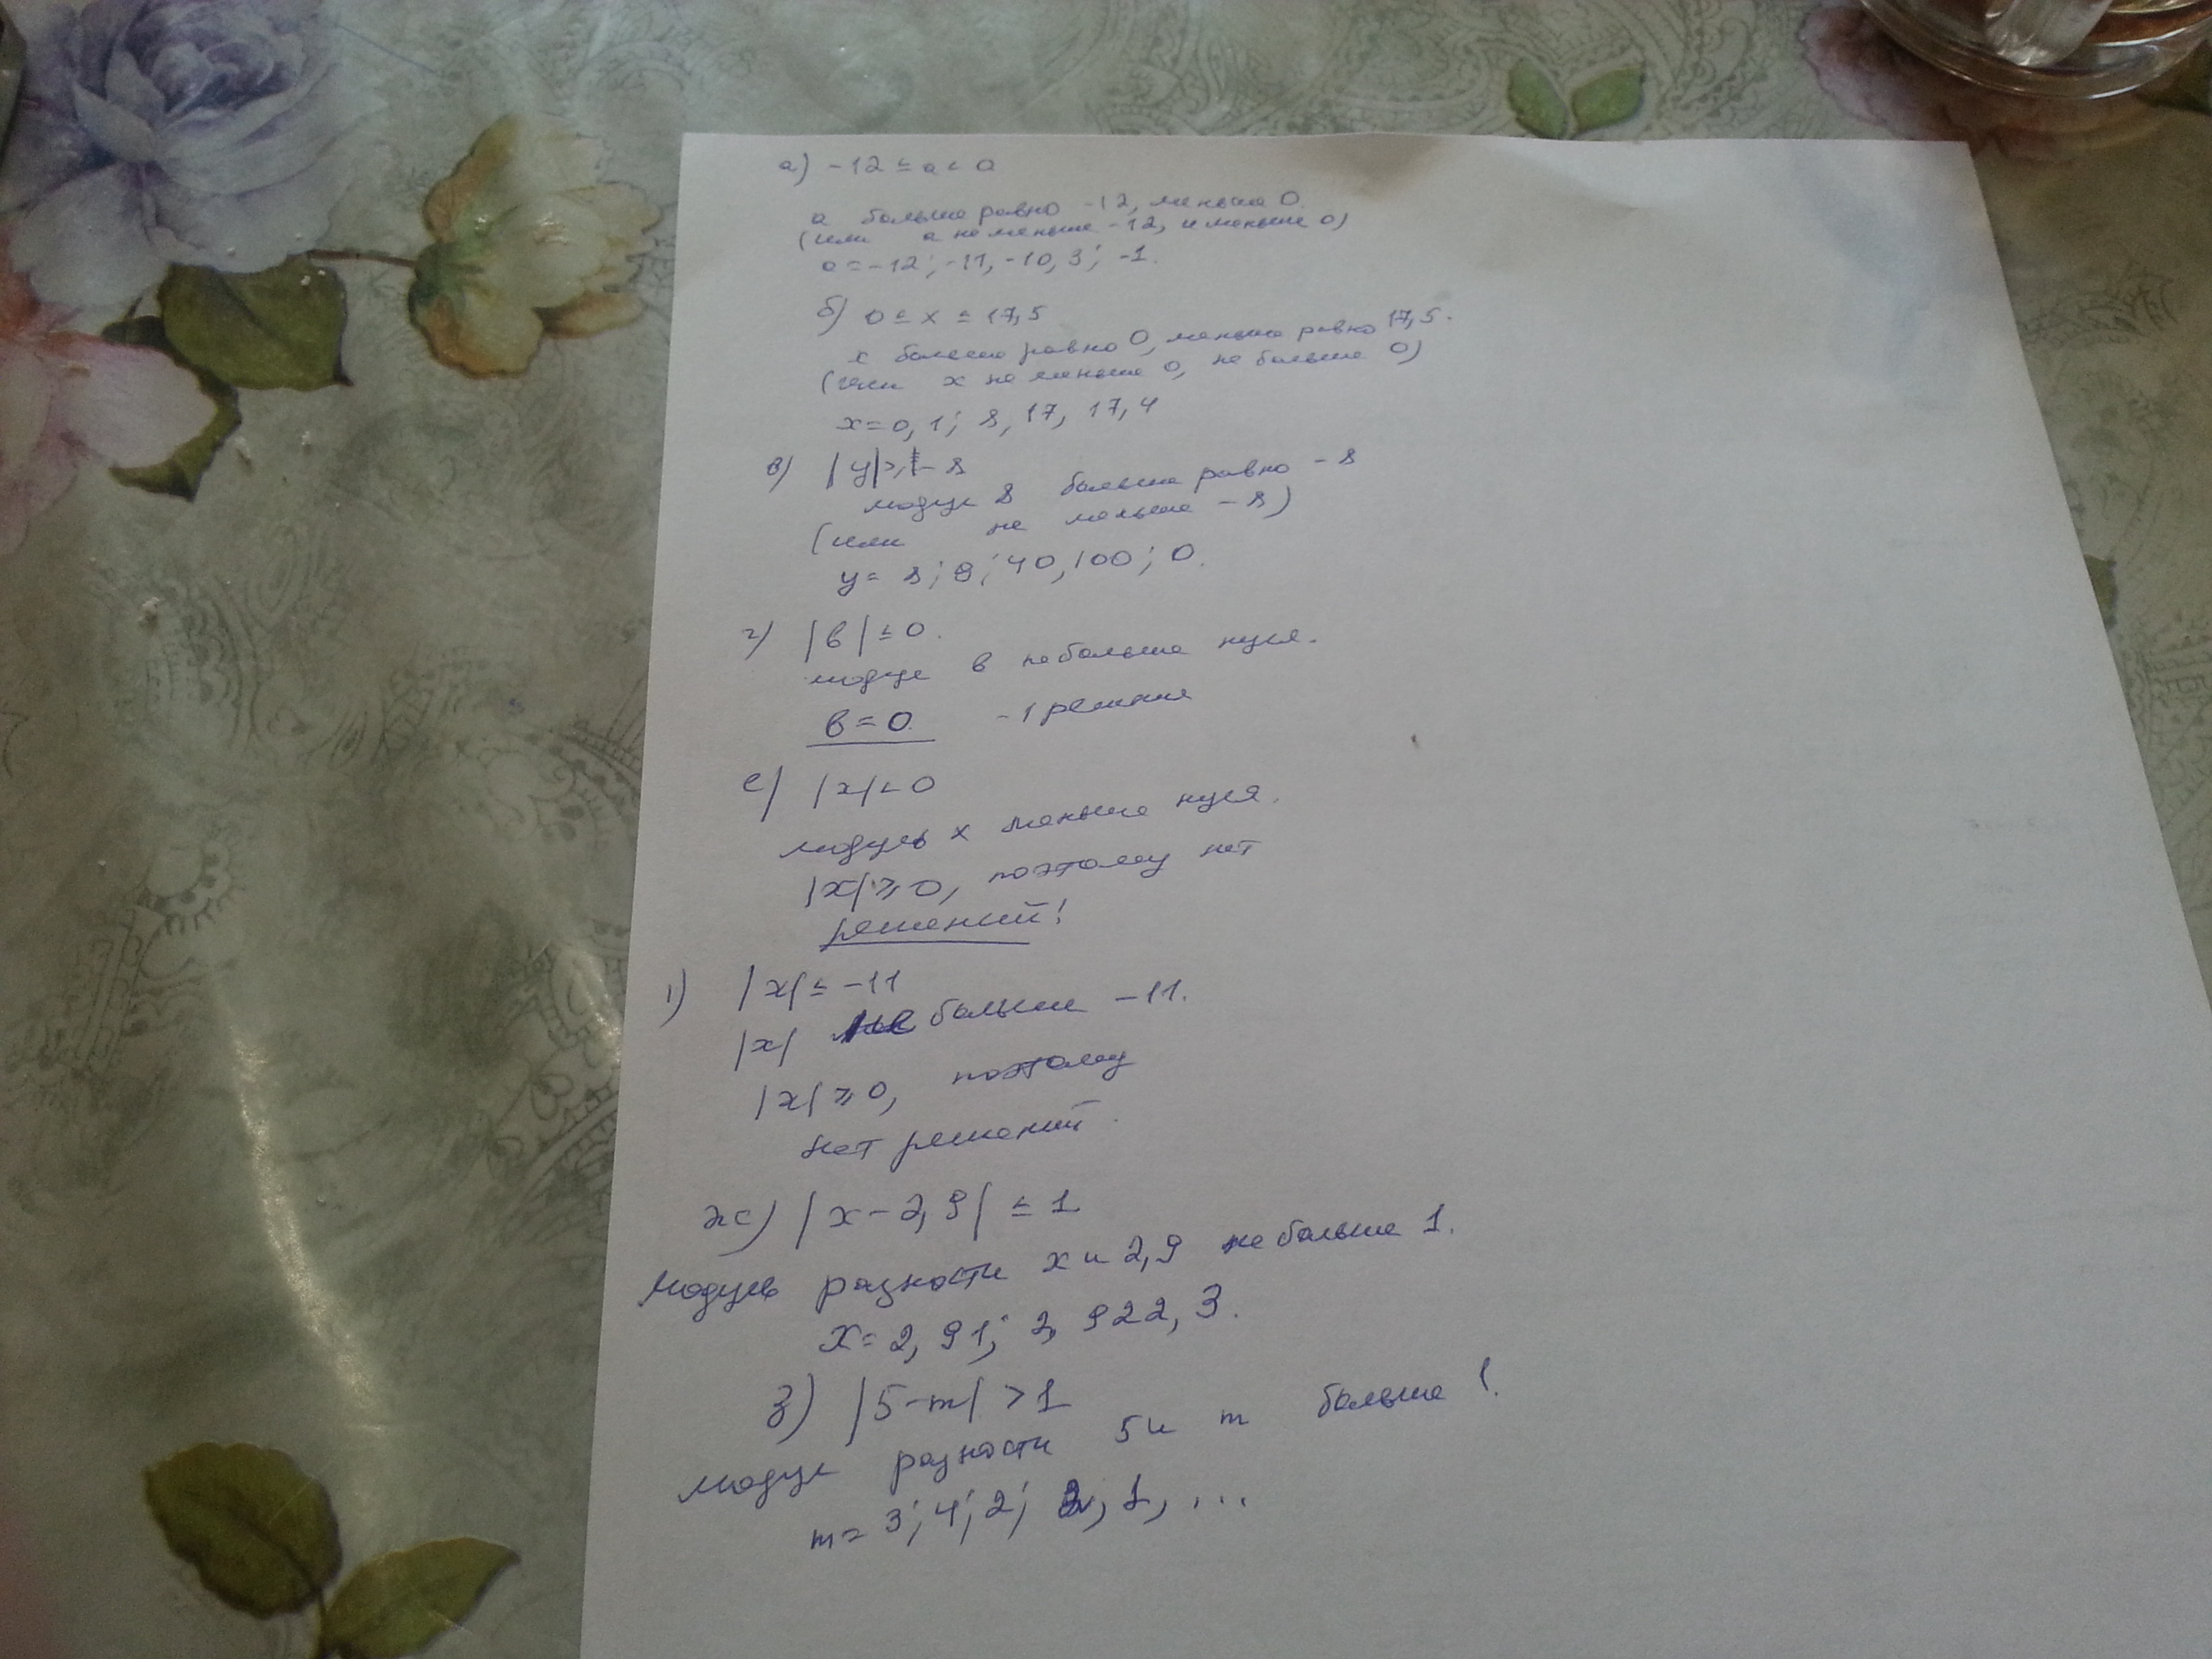 а) -12 ≤ a < 0
a больше равно -12, меньше 0.
(или a не меньше -12, и меньше 0)
a = -12; -11, -10,3; -1.
б) 0 ≤ x ≤ 17,5
x больше равно 0, меньше равно 17,5.
(или x не меньше 0, не больше 0)
x = 0,1; 8, 17, 17,4
в) |y| ≥ - 8
модуль 8 больше равно - 8
(или не меньше - 8)
y = 8; 9; 40, 100; 0.
г) |в| ≤ 0.
модуль в не больше нуля.
в = 0. - 1 решение
е) |x| < 0
модуль x меньше нуля.
|x| ≥ 0, поэтому нет
решений!
1) |x| ≤ -11
|x| не больше -11.
|x| ≥ 0, поэтому
нет решений.
ж) |x - 2,9| ≤ 1
Модуль разности x и 2,9 не больше 1.
x = 2,91; 2,922, 3.
з) |5-m| > 1
модуль разности 5 и m больше 1.
m = 3; 4; 2; 1, ...